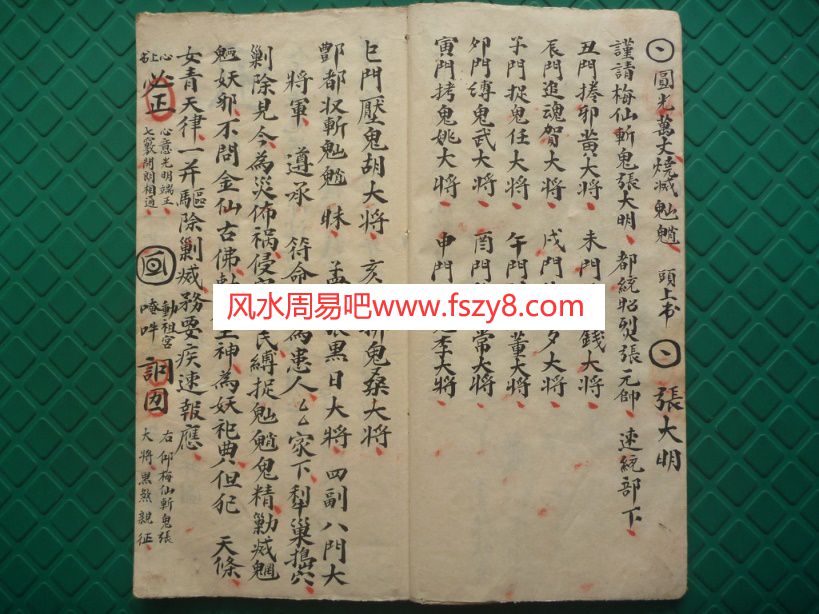 圓光萬丈燒滅魈魈 頭上书 張大明
謹請梅仙斬鬼張大明 都統昭烈張元帥 速統部下
丑門捲邪黃大将 未門 錢大将
辰門追魂賀大将 戌門 大将
子門捉鬼任大将 午門 董大将
夘門縛鬼武大将 酉門 常大将
寅門拷鬼姚大将 申門 李大将
巳門壓鬼胡大将 亥 斬鬼桑大将
酆都收斬魈 黑日大将 四副八門大
将軍 遵承 符命 為患人 家下犁巢搗穴
剿除見今為災佈禍侵 民縛捉 鬼精勦滅魍
魎妖邪不問金仙古佛 神為妖祀典但犯 天條
女青天律一并驅除剿滅務要疾速報應
心上书 心意光明端正 七竅開關相通 回 動祖宮 唵吽 右仰梅仙斬鬼張 大将黑煞親征
风水周易吧www.fszy8.com